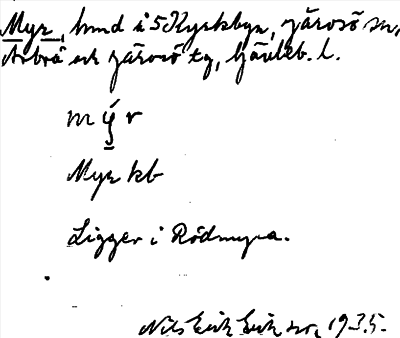 Myr, hmd i 5 Kyrkbyn, Järvsö sn,
Arbrå och Järvsö tg, Gävleb. l.
mýr
Myr kb
Ligger i Rödmyra.
Nils Erik Erikson, 1935.